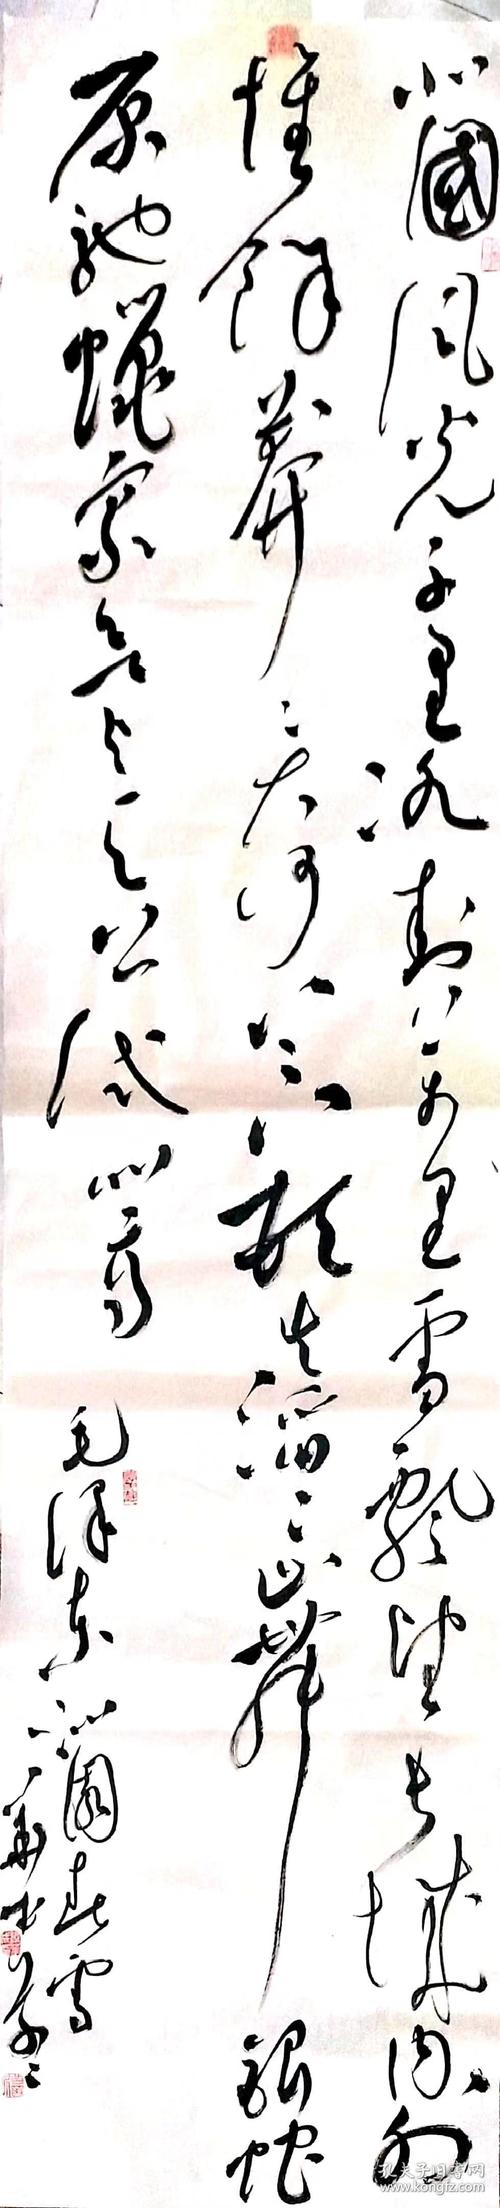 北國風光千里冰封万里雪飄望长城内外
惟餘莽〻大河上下頓失滔〻山舞銀蛇
原馳蠟象欲与天公试比高
毛泽东沁園春雪
孔夫子旧书网
www.kongfz.com